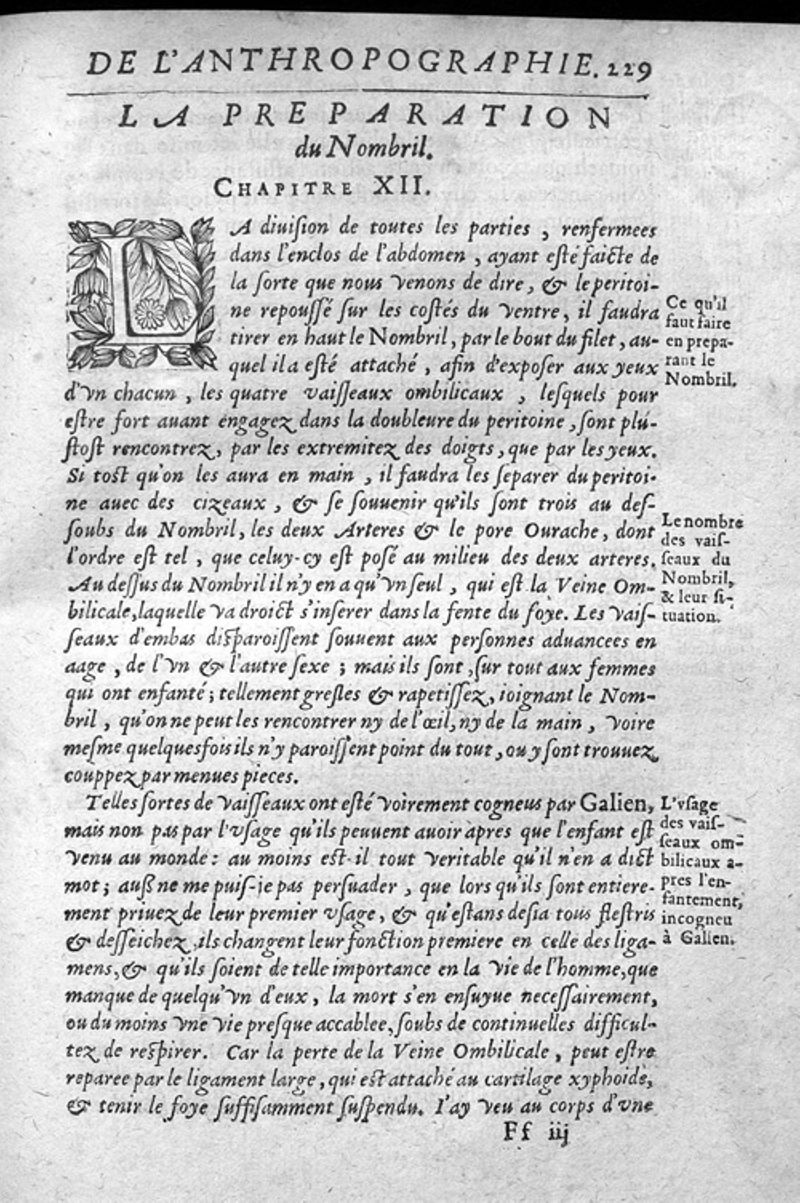 DE L'ANTHROPOGRAPHIE. 229
LA PREPARATION
du Nombril.
CHAPITRE XII.
LA diuiſion de toutes les parties, renfermees
dans l'enclos de l'abdomen, ayant eſté faicte de
la ſorte que nous venons de dire, & le peritoi-
ne repouſſé ſur les coſtés du ventre, il faudra
tirer en haut le Nombril, par le bout du filet, au-
quel il a eſté attaché, afin d'expoſer aux yeux
d'vn chacun, les quatre vaiſſeaux ombilicaux, leſquels pour
eſtre fort auant engagez dans la doubleure du peritoine, ſont plú-
ſtoſt rencontrez, par les extremitez des doigts, que par les yeux.
Si toſt qu'on les aura en main, il faudra les ſeparer du peritoi-
ne auec des cizeaux, & ſe ſouuenir qu'ils ſont trois au deſ-
ſoubs du Nombril, les deux Arteres & le pore Ourache, dont
l'ordre eſt tel, que celuy-cy eſt poſé au milieu des deux arteres.
Au deſſus du Nombril il n'y en a qu'vn ſeul, qui eſt la Veine Om-
bilicale, laquelle va droict s'inſerer dans la fente du foye. Les vaiſ-
ſeaux d'embas diſparoiſſent ſouuent aux perſonnes aduancees en
aage, de l'vn & l'autre ſexe; mais ils ſont, ſur tout aux femmes
qui ont enfanté; tellement greſles & rapetiſſez, ioignant le Nom-
bril, qu'on ne peut les rencontrer ny de l'œil, ny de la main, voire
meſme quelquesfois ils n'y paroiſſent point du tout, ou y ſont trouuez
couppez par menues pieces.
Telles ſortes de vaiſſeaux ont eſté voirement cogneus par Galien,
mais non pas par l'vſage qu'ils peuuent auoir apres que l'enfant eſt
venu au monde: au moins eſt-il tout veritable qu'il n'en a dict
mot; auſſi ne me puis-je pas perſuader, que lors qu'ils ſont entiere-
ment priuez de leur premier vſage, & qu'eſtans deſia tous fleſtris
& deſſeichez, ils changent leur fonction premiere en celle des liga-
mens, & qu'ils ſoient de telle importance en la vie de l'homme, que
manque de quelqu'vn d'eux, la mort s'en enſuyue neceſſairement,
ou du moins vne vie preſque accablee, ſoubs de continuelles difficul-
tez de reſpirer. Car la perte de la Veine Ombilicale, peut eſtre
reparee par le ligament large, qui eſt attaché au cartilage xyphoide,
& tenir le foye ſuffiſamment ſuſpendu. I'ay veu au corps d'vne
Ff iij
Ce qu'il
faut faire
en prepa-
rant le
Nombril.
Le nombre
des vaiſ-
ſeaux du
Nombril,
& leur ſi-
tuation.
L'vſage
des vaiſ-
ſeaux om-
bilicaux a-
pres l'en-
fantement,
incogneu
à Galien.